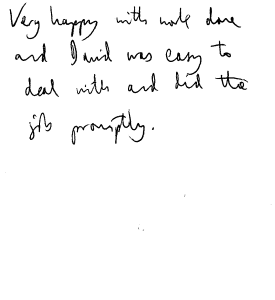 Very happy with work done
and David was easy to
deal with and did the
job promptly.